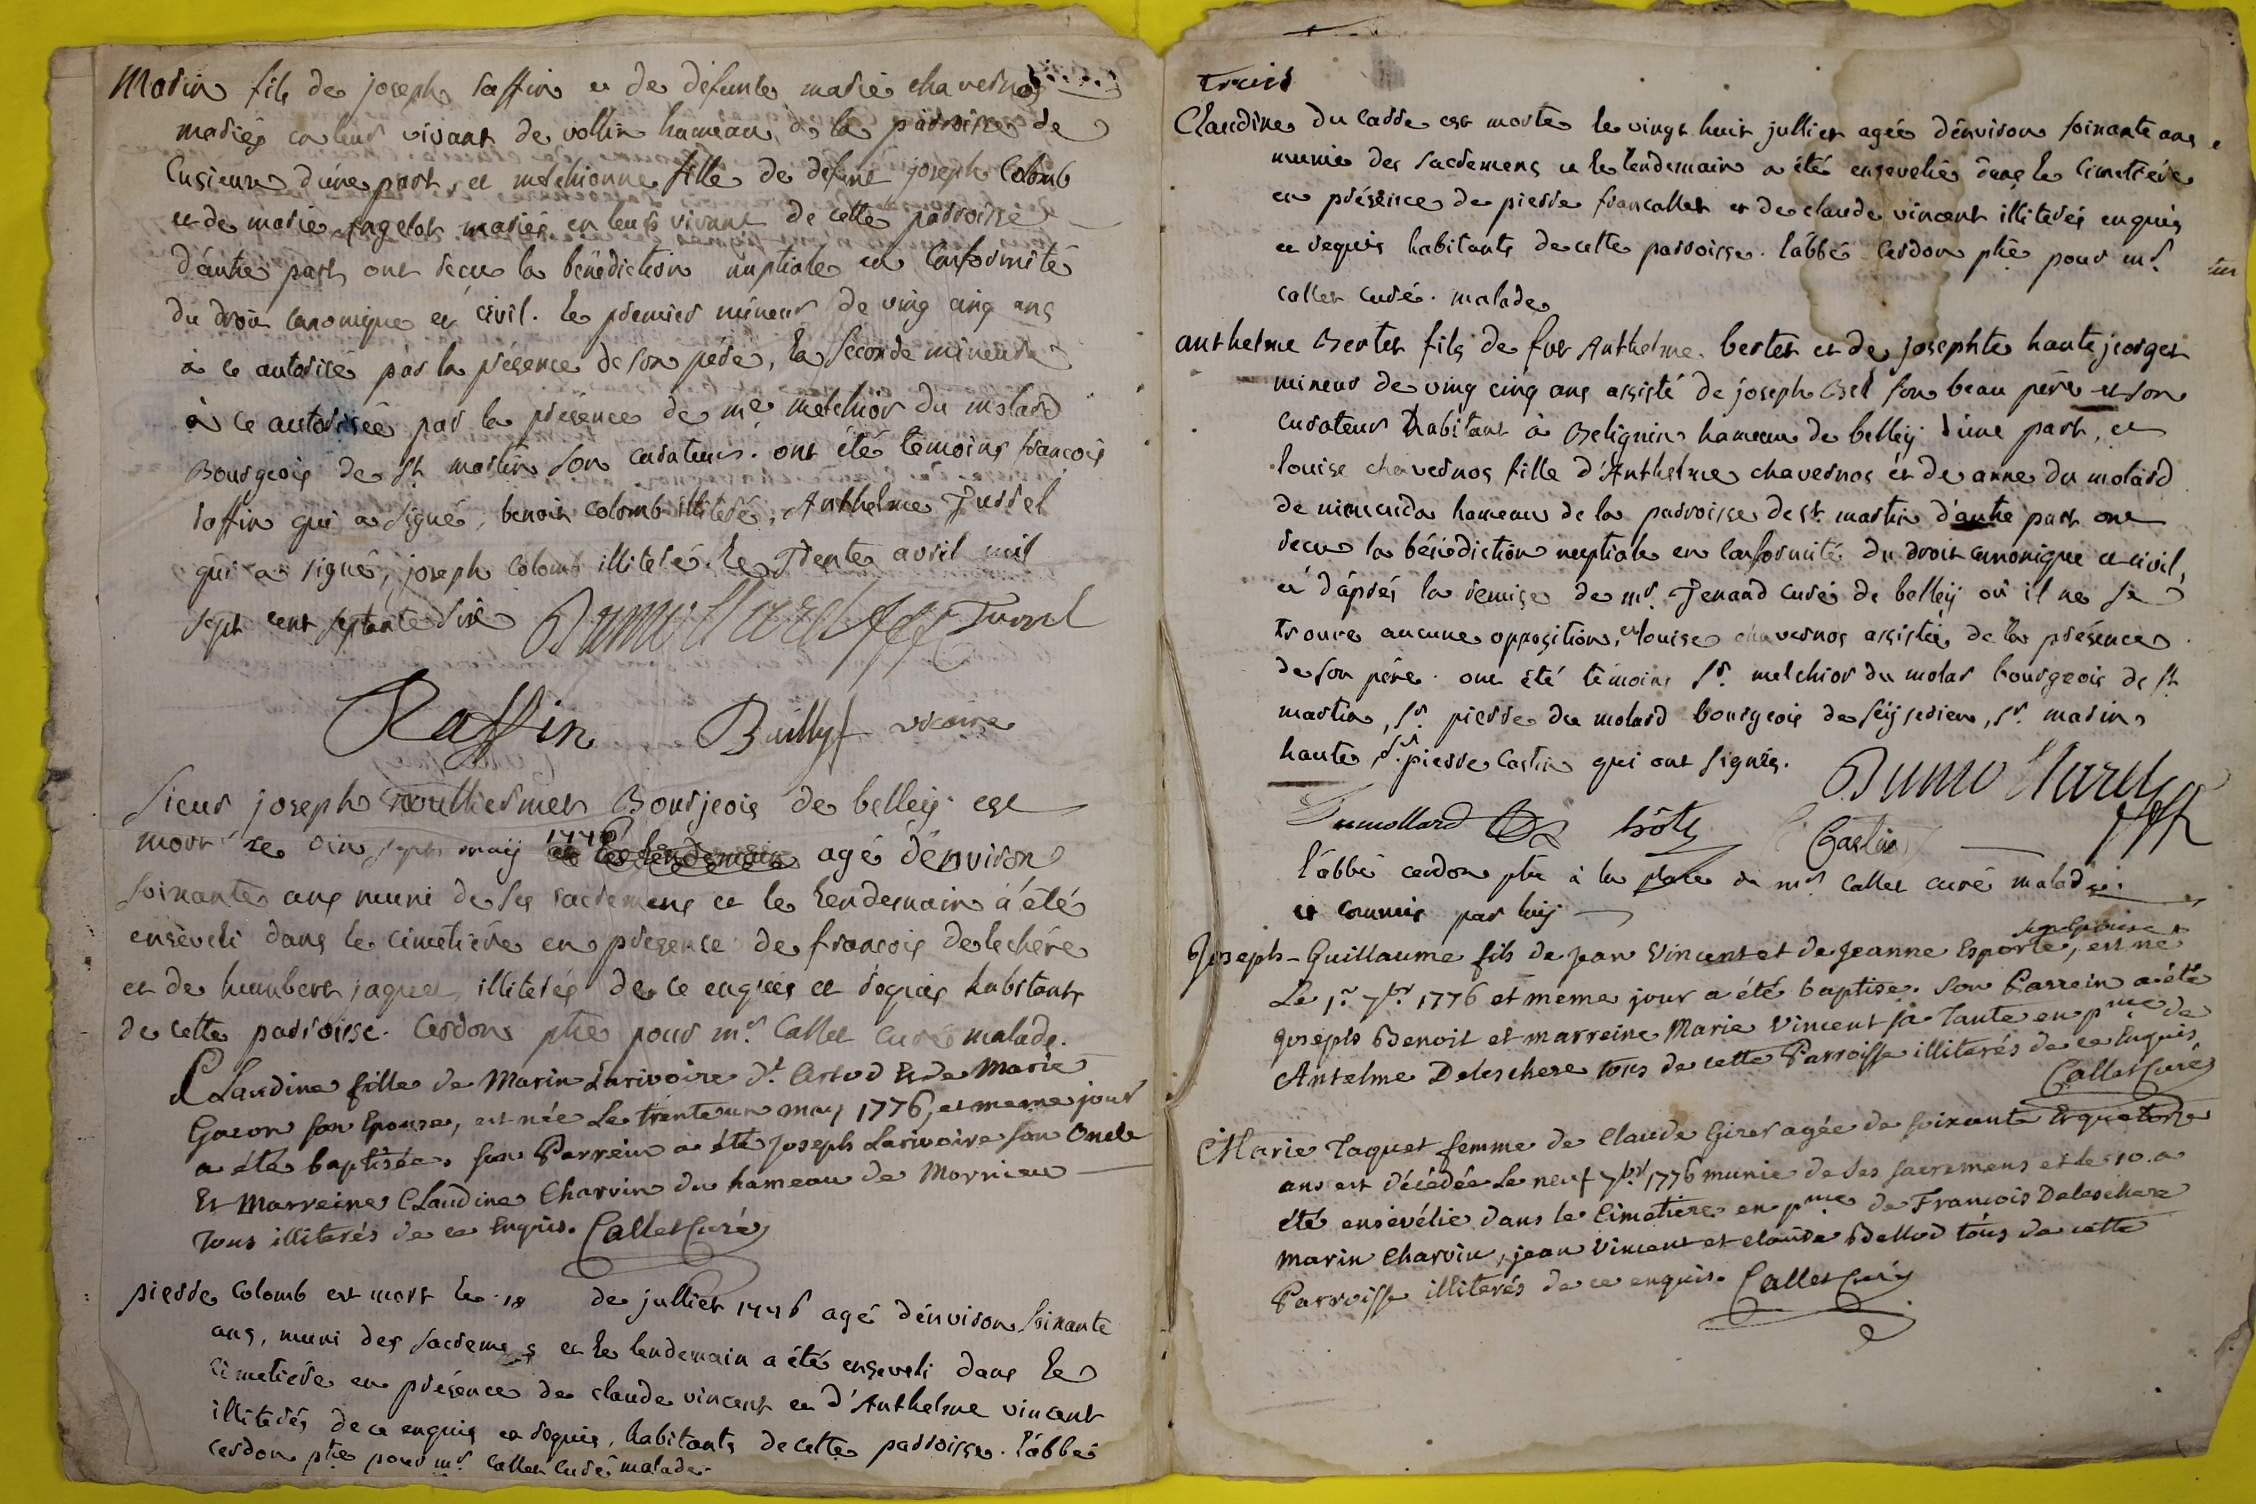 Marin fils de joseph raffin et de defunte marie chavernos
mariés en leur vivant de vollin hameau de la parroisse de
Cusieure d'une part, et melchionne fille de defunt joseph Colomb
et de marie angelot mariés en leurs vivant de cette parroisse
d'autre part ont recu la bénédiction nuptiale en conformité
du droit canonique et civil. le premier mineur de ving cinq ans
à ce autorisé par la présence de son père, la seconde mineure
à ce autorisée par la présence de me melchior du molard
Bourgeois de st. martin son curateur. ont été temoins francois
raffin qui a signé, benoit colomb illiteré, Anthelme Jussel
qui a signé, joseph colomb illiteré. le trente avril mil
sept cent septante six Dumollard
Raffin Buillyf vicaire
Sieur joseph Bourjeois de belley est
mort le six maij 1776 agé d'environ
soixante ans muni de ses sacremens et le lendemain a été
enseveli dans le cimetière en presence de francois delechére
et de humbert jaquet, illiterés de ce enquis et requis habitants
de cette parroisse. Cerdon ptre pour mr. Callet curé malade.
Claudine fille de Marin Larivoire dt. Et de Marie
Goeon son Epouse, est née Le trente un may 1776, et meme jour
a été baptisée. son Parrein a été Joseph Larivoire son Oncle
Et Marreine Claudine Charvin du hameau de Morrieu
Tous illiterés de ce Enquis. Callet Curé
pierre Colomb est mort le 18 de jullier 1776 agé d'environ soixante
ans, muni des sacremens et le lendemain a été enseveli dans le
cimetiere en présence de claude vincent et d'Anthelme vincent
illiterés de ce enquis et requis, habitants de cette parroisse. l'abbé
cerdon ptre pour mr. callet curé malade.
trois
Claudine du cadde est morte le vingt huit jullier agée d'environ soixante ans
munie des sacremens et le lendemain a été ensevelie dans le cimetière
en présence de pierre francallet et de claude vincent illiterés enquis
et requis habitants de cette parroisse. l'abbé Cerdon ptre pour mr.
callet curé. malade
anthelme Bertet fils de feu Anthelme bertet et de josephte hautejeorget
mineur de ving cinq ans assisté de joseph Bel son beau père et son
curateur habitant à Belignin hameau de belley d'une part, et
louise chavernos fille d'Anthelme chavernos et de anne du molard
de hameau de la parroisse de st. martin d'autre part ont
recu la bénédiction nuptiale en conformité du droit canonique et civil,
et d'après la remise de mr. Jenand curé de belley où il ne se
trouve aucune opposition, et louise chavernos assistée de la présence
de son père. ont été témoins sr. melchior du molar bourgeois de st
martin, sr. pierre du molard bourgeois de seijsedieu, sr. marin
haute sr. pierre Castin qui ont signés.
Dumollard
Dumollard hôte Castin
l'abbé cerdon ptre à la place de mr callet curé malade
et commis par luij
Joseph-Guillaume fils de Jean Vincent et de Jeanne Esporte, son Epouse est né
Le 1r. 7br 1776 et meme jour a été baptise. son Parrein a été
Joseph Benoit et marreine Marie Vincent sa Tante en pnce de
Antelme Deleschere tous de cette Parroisse illiterés de ce Enquis
Callet Curé
Marie Jaquet femme de Claude Girer agée de soixante Et quatorze
ans est décédée Le neuf 7br 1776 munie de ses sacremens et le 10. a
été ensevélie dans le Cimetiere en pnce de Francois Deleschere
Marin Charvin, jean Vincent et claude Bellod tous de cette
Parroisse illiterés de ce enquis. Callet Curé